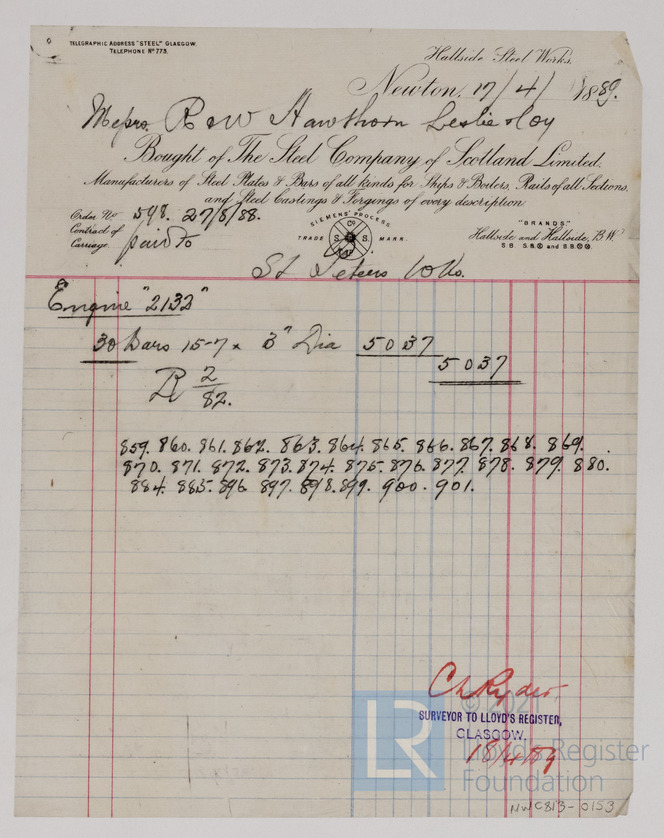 TELEGRAPHIC ADDRESS "STEEL" GLASGOW.
TELEPHONE No 773.
Hallside Steel Works.
Newton, 17/4/1889.
Messrs. R & W Hawthorn Leslie & Coy
Bought of The Steel Company of Scotland Limited.
Manufacturers of Steel Plates & Bars of all kinds for Ships & Boilers, Rails of all Sections,
and Steel Castings & Forgings of every description
Order No 598. 27/8/88.
Contract of
Carriage. paid to
SIEMENS' PROCESS
TRADE MARK.
Co
S S.
"BRANDS."
Hallside and Hallside, B.W.
St Peters Wks.
Engine "2132"
30 Bars 15-7 x 3" Dia 5037
5037
R 2/82.
859. 860. 861. 862. 863. 864. 865. 866. 867. 868. 869.
870. 871. 872. 873. 874. 875. 876. 877. 878. 879. 880.
884. 885. 896. 897. 898. 899. 900. 901.
© 2021
SURVEYOR TO LLOYD'S REGISTER,
GLASGOW.
18/4/89
LR
Lloyd's Register
Foundation
NWC813-0153